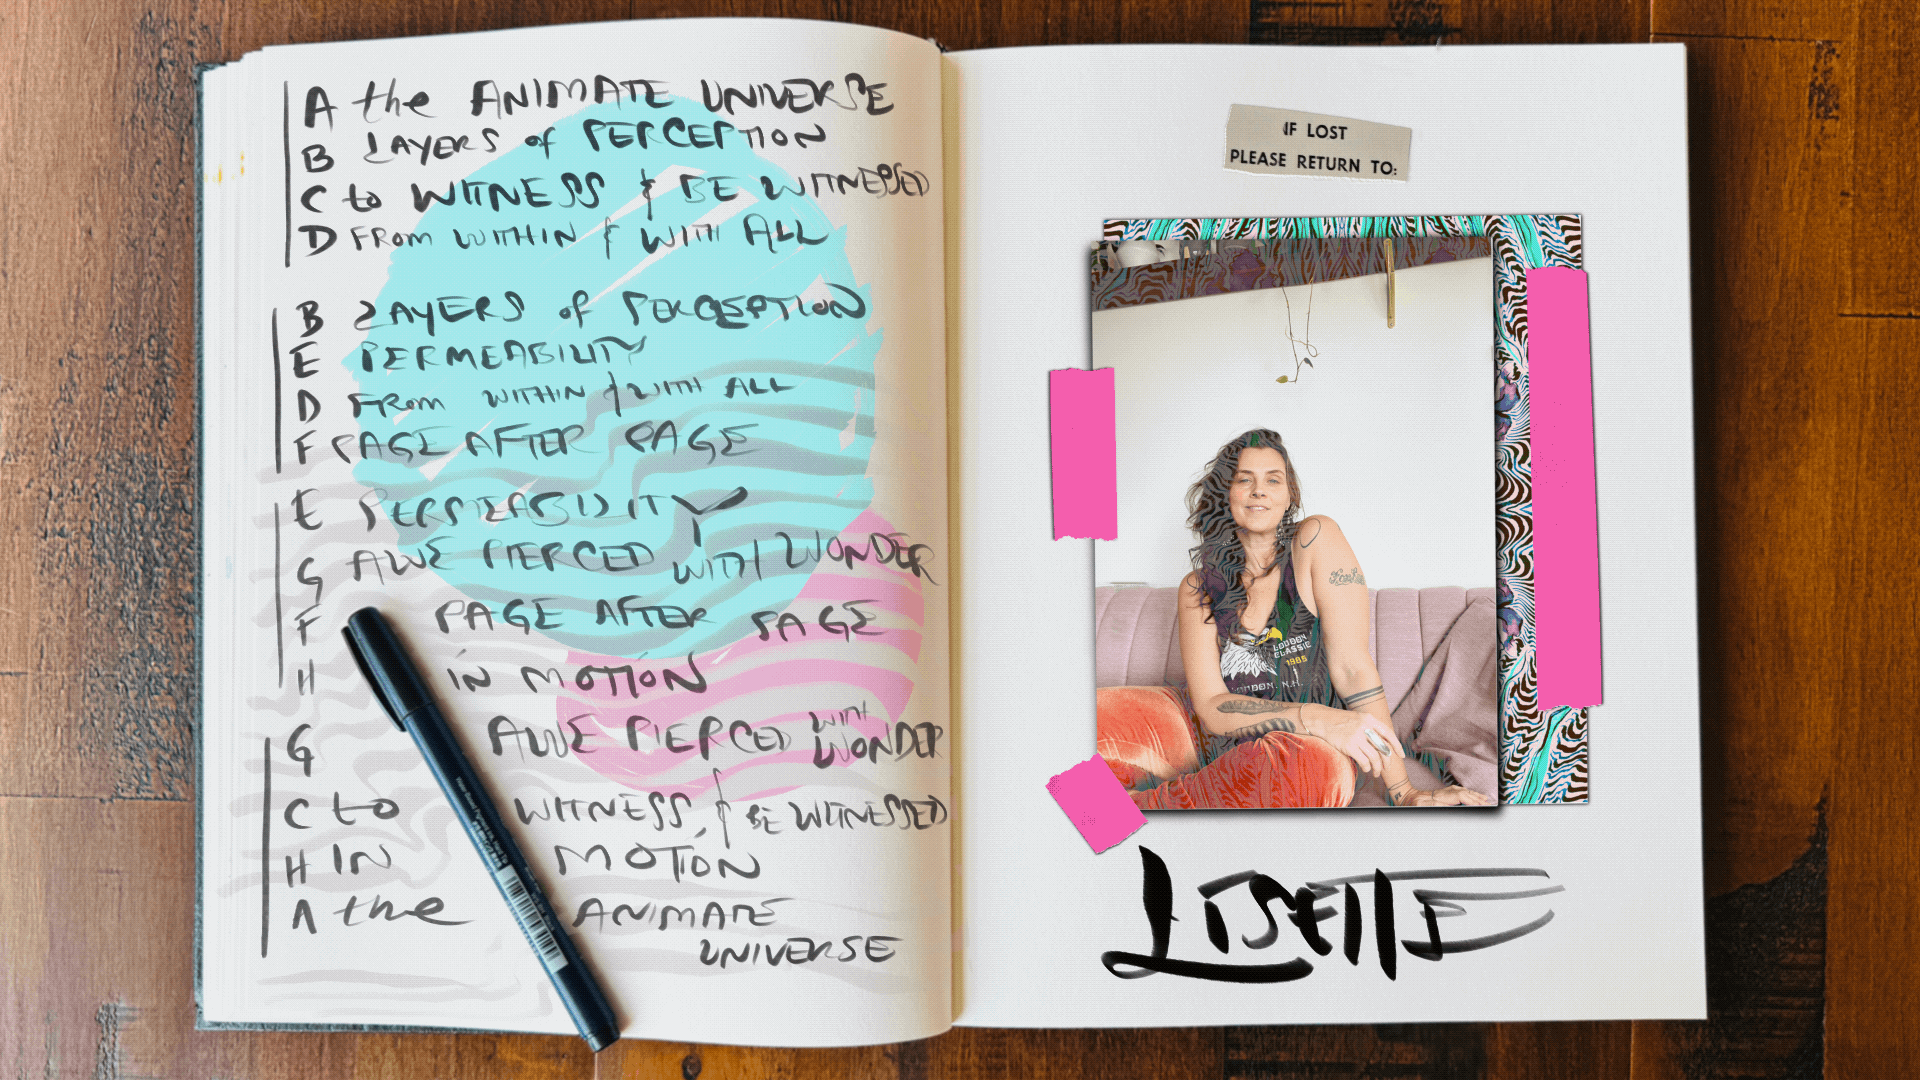 A the ANIMATE UNIVERSE
B LAYERS of PERCEPTION
C to WITNESS & BE WITNESSED
D FROM WITHIN & WITH ALL
B LAYERS of PERCEPTION
E PERMEABILITY
D FROM WITHIN & WITH ALL
F PAGE AFTER PAGE
E PERMEABILITY
G AWE PIERCED WITH WONDER
F PAGE AFTER PAGE
H IN MOTION
G AWE PIERCED WITH WONDER
C to WITNESS & BE WITNESSED
H IN MOTION
A the ANIMATE
UNIVERSE
IF LOST
PLEASE RETURN TO:
LOUDON
CLASSIC
1985
LOUDON, N.H.
LISETTE